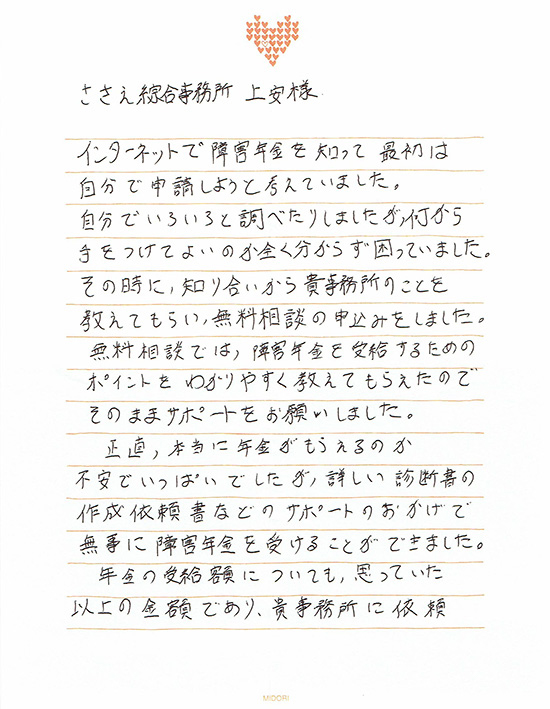 ささえ綜合事務所 上安様
インターネットで障害年金を知って 最初は
自分で申請しようと考えていました。
自分でいろいろと調べたりしましたが,何から
手をつけてよいのか全く分からず困っていました。
その時に,知り合いから貴事務所のことを
教えてもらい,無料相談の申込みをしました。
無料相談では,障害年金を受給するための
ポイントを わかりやすく教えてもらえたので
そのままサポートをお願いしました。
正直,本当に年金がもらえるのか
不安でいっぱいでしたが,詳しい診断書の
作成依頼書などのサポートのおかげで
無事に障害年金を受けることができました。
年金の受給額についても,思っていた
以上の金額であり、貴事務所に依頼
MIDORI